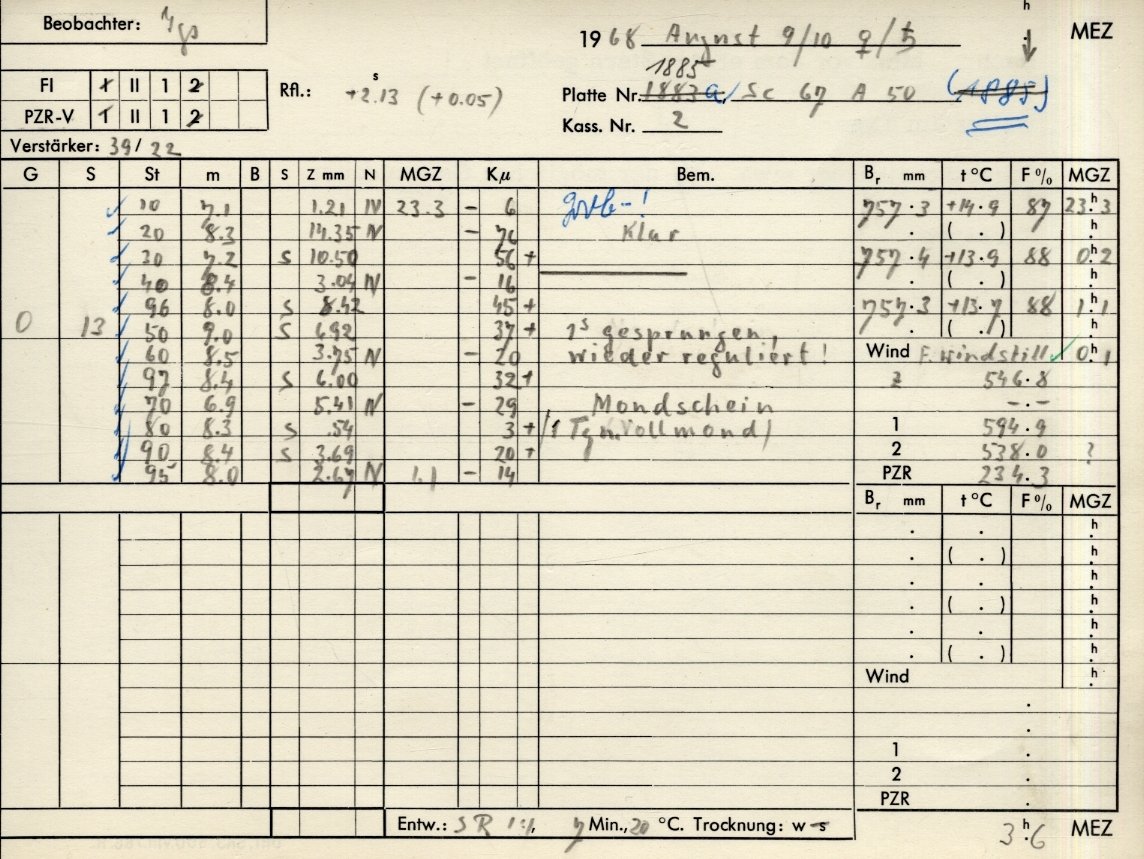 Beobachter:
h
MEZ
1968 August 9/10 ♀/♄
1885
FI I II 1 2
Rfl.: +2.13 s (+0.05)
Platte Nr. 1883a, Sc 67 A 50 (1885)
PZR-V I II 1 2
Kass. Nr. 2
Verstärker: 39/22
G S St m B S Z mm N MGZ Kμ Bem. Br mm t°C F% MGZ
10 7.1 1.21 N 23.3 - 6 757.3 +14.9 87 23h3
20 8.3 14.35 N - 76 Klar . ( . ) h.
30 7.2 S 10.50 56 + 757.4 +13.9 88 0h2
40 8.4 3.04 N - 16 . ( . ) h.
96 8.0 S 8.42 45 + 757.3 +13.7 88 1h1
0 13 50 9.0 S 6.92 37 + 1s gesprungen, . ( . ) h.
60 8.5 3.75 N - 20 wieder reguliert! Wind F. windstill 0h1
97 8.4 S 6.00 32 + z 546.8
70 6.9 5.41 N - 29 Mondschein -.-
80 8.3 S .54 3 + /1 Tg n. Vollmond/ 1 594.9
90 8.4 S 3.69 20 + 2 538.0 ?
95 8.0 2.67 N 1.1 - 14 PZR 234.3
Br mm t°C F% MGZ
. . h.
. ( . ) h.
. . h.
. ( . ) h.
. . h.
. ( . ) h.
Wind h.
.
.
1 .
2 .
PZR .
Entw.: SR 1:1, 7 Min., 20 °C. Trocknung: w-s
3h6 MEZ